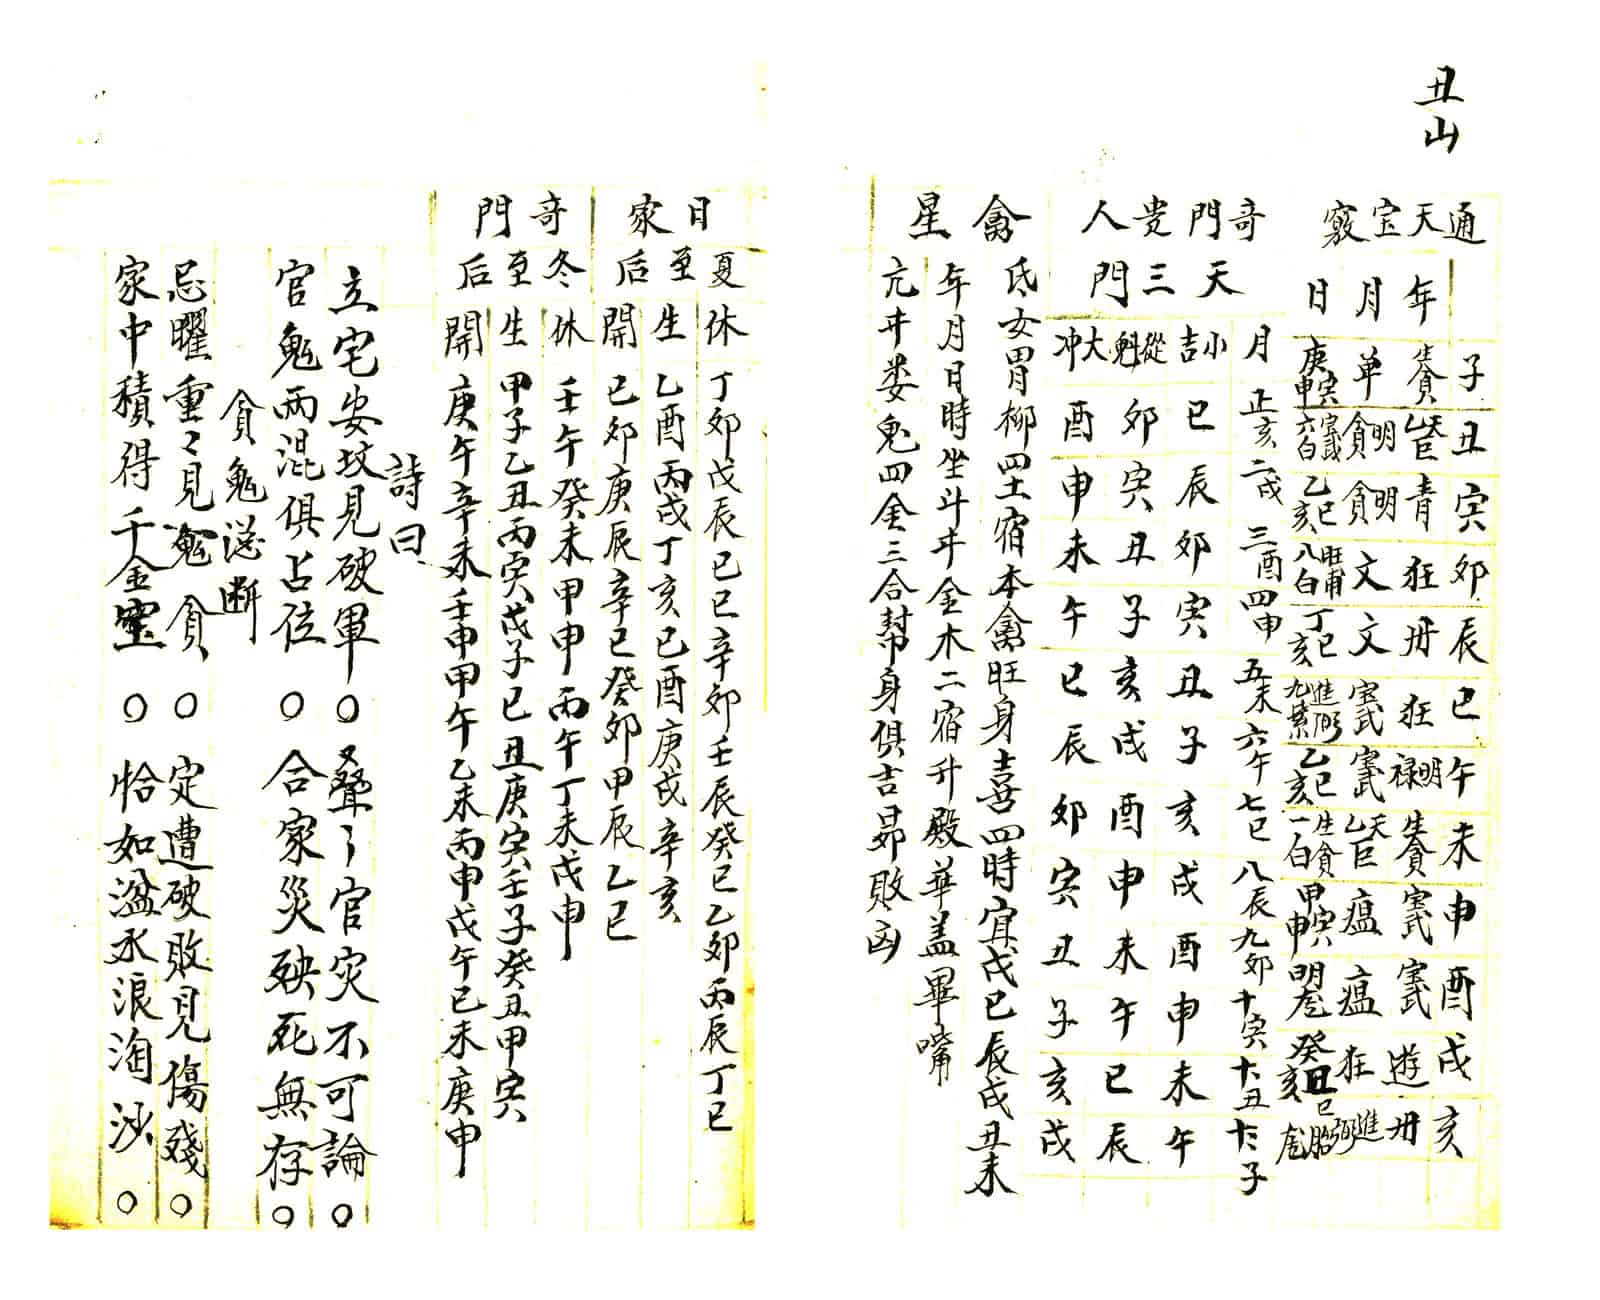 丑山
通天宝竅
子丑寅卯辰巳午未申酉戌亥
年
青狂丹狂
遊丹
月单
明貪明貪文文
瘟瘟狂
日庚寅申六白
乙巳亥八白丁巳亥
九紫
乙巳亥一白
甲寅申
癸丑
奇門贵人
天三門
月正亥二戌三酉四申五未六午七巳八辰九卯十寅十一丑十二子
小吉巳辰卯寅丑子亥戌酉申未午
從魁卯寅丑子亥戌酉申未午巳辰
大冲酉申未午巳辰卯寅丑子亥戌
禽星
氐女胃柳四土宿本禽旺身喜四時宜戊巳辰戌丑未
年月日時坐斗牛金木二宿升殿華盖畢嘴
亢牛娄鬼四金三合幇身俱吉昴敗凶
日家
夏至后
休丁卯戊辰巳巳辛卯壬辰癸巳乙卯丙辰丁巳
生乙酉丙戌丁亥巳酉庚戌辛亥
開巳卯庚辰辛巳癸卯甲辰乙巳
奇門
冬至后
休壬午癸未甲申丙午丁未戊申
生甲子乙丑丙寅戊子巳丑庚寅壬子癸丑甲寅
開庚午辛未壬申甲午乙未丙申戊午巳未庚申
詩曰
立宅安坟見破軍○叠々官灾不可論○
官鬼兩混俱占位○合家災殃死無存○
貪鬼总断
忌曜重々見鬼貪○定遭破敗見傷殘○
家中積得千金寳○恰如湓水浪淘沙○